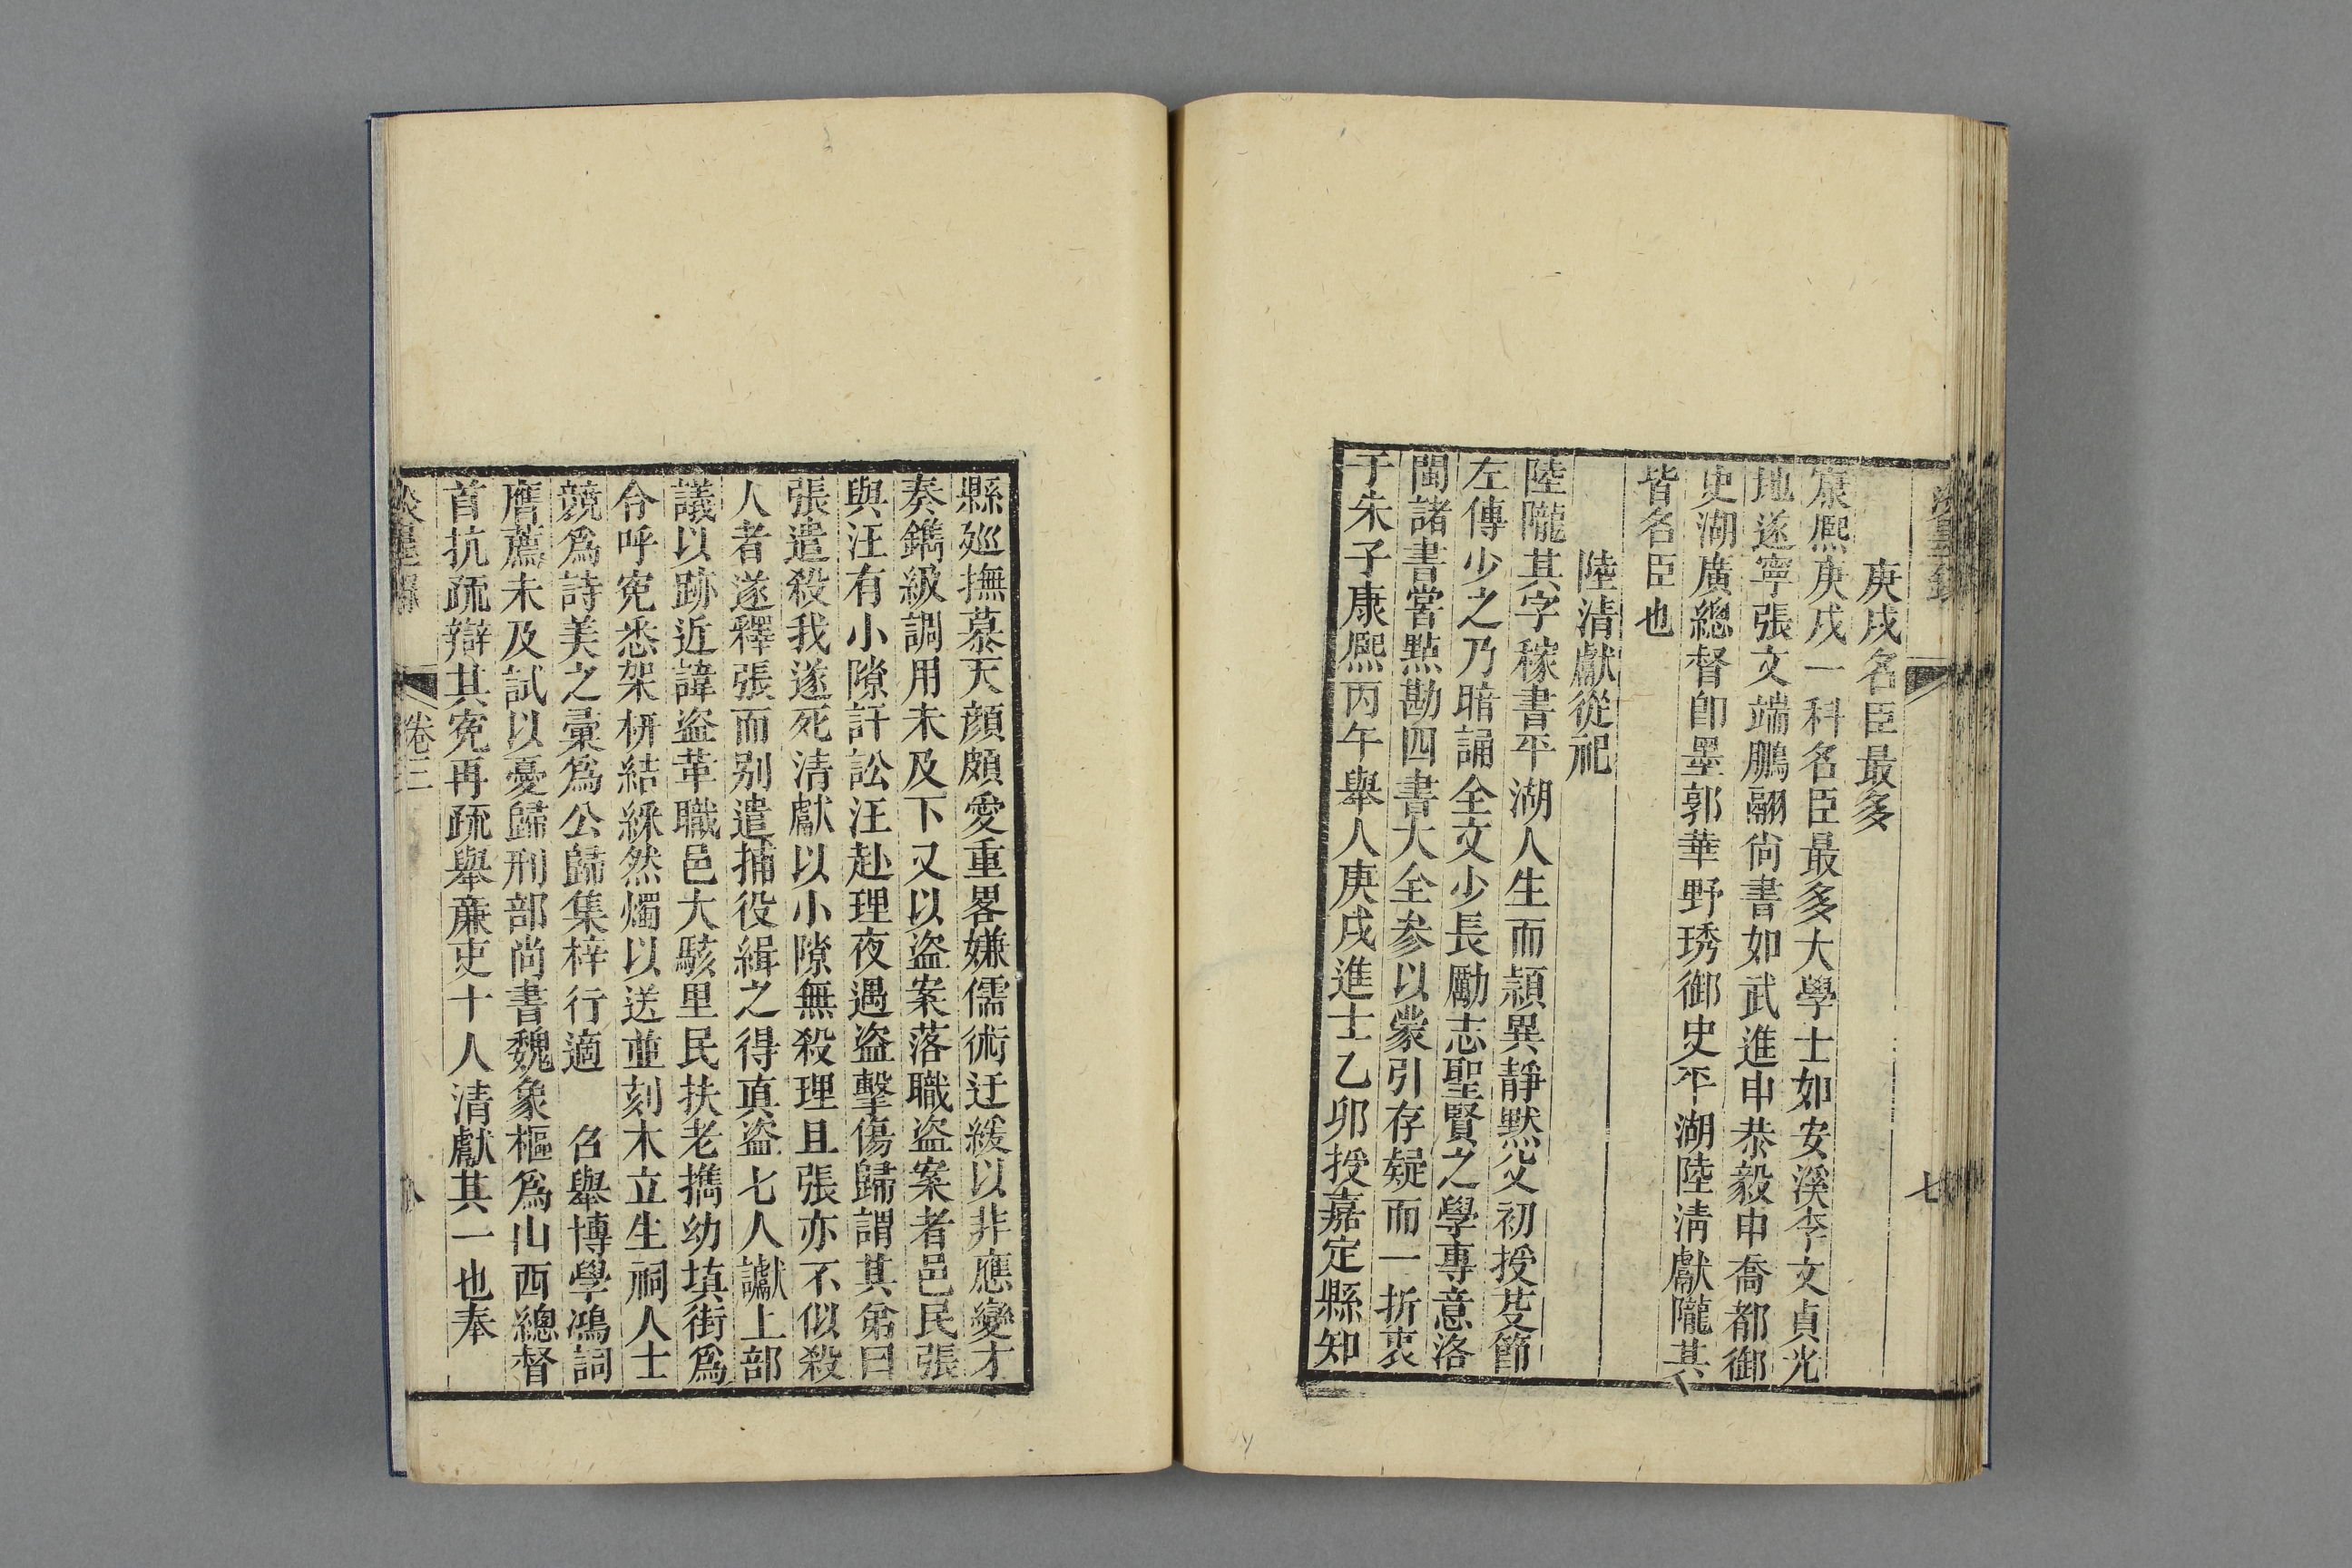 庚戌名臣最多
康熙庚戌一科名臣最多大學士如安溪李文貞光
地遂寧張文端鵬翮尙書如武進申恭毅申喬都御
史湖廣總督卽墨郭華野琇御史平湖陸淸獻隴其
皆名臣也
陸淸獻從祀
陸隴其字稼書平湖人生而頴異靜默父初授芟節
左傳少之乃暗誦全文少長勵志聖賢之學專意洛
閩諸書嘗㸃勘四書大全参以蒙引存疑而一折衷
于朱子康熙丙午舉人庚戌進士乙卯授嘉定縣知
七
縣廵撫慕天顔頗愛重畧嫌儒術迂緩以非應變才
奏鐫級調用未及下又以盗案落職盗案者邑民張
與汪有小隙訐訟汪赴理夜遇盗擊傷歸謂其弟曰
張遣殺我遂死清獻以小隙無殺理且張亦不似殺
人者遂釋張而别遣捕役緝之得真盗七人讞上部
議以跡近諱盗革職邑大駭里民扶老擕幼填街為
令呼寃悉架栟結綵然燭以送並刻木立生祠人士
競為詩美之彙為公歸集梓行適　召舉博學鴻詞
膺薦未及試以憂歸刑部尙書魏象樞為山西總督
首抗疏辯其寃再疏舉亷吏十人清獻其一也奉
卷三